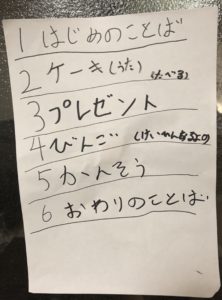 1 はじめのことば
2 ケーキ(うた) (たべる)
3 プレゼント
4 びんご
5 かんそう
6 おわりのことば